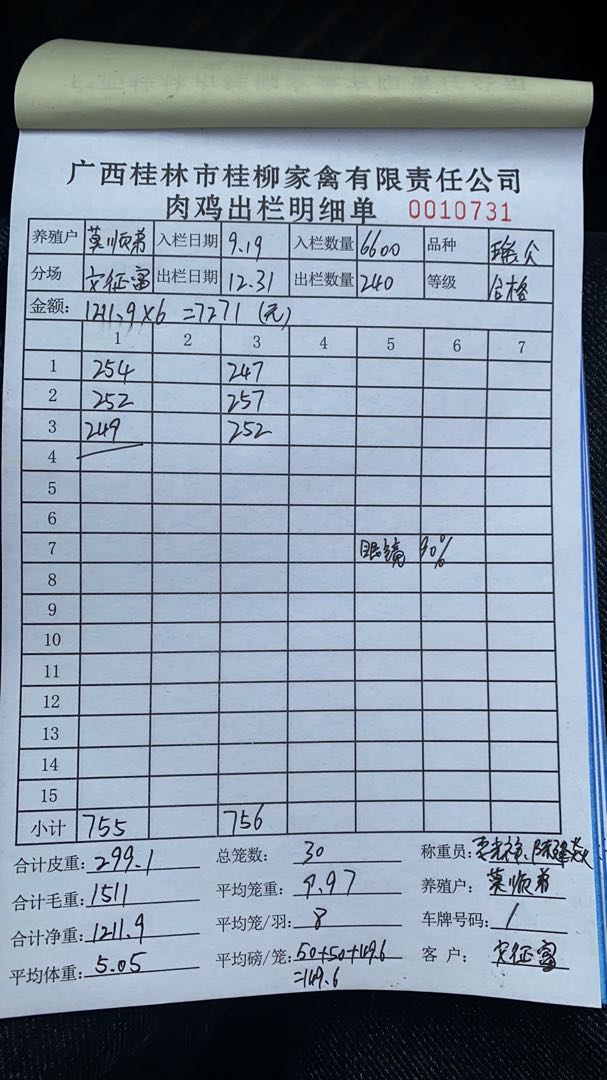 广西桂林市桂柳家禽有限责任公司
肉鸡出栏明细单 0010731
养殖户 莫顺弟 入栏日期 9.19 入栏数量 6600 品种
分场 文征富 出栏日期 12.31 出栏数量 240 等级 合格
金额: 1211.9×6 =7271 (元)
1 2 3 4 5 6 7
1 254 247
2 252 257
3 249 252
4
5
6
7 眼镜 90%
8
9
10
11
12
13
14
15
小计 755 756
合计皮重: 299.1 总笼数: 30 称重员:
合计毛重: 1511 平均笼重: 9.97 养殖户: 莫顺弟
合计净重: 1211.9 平均笼/羽: 8 车牌号码: /
平均体重: 5.05 平均磅/笼: 50+50+49.6 客户: 文征富
=149.6